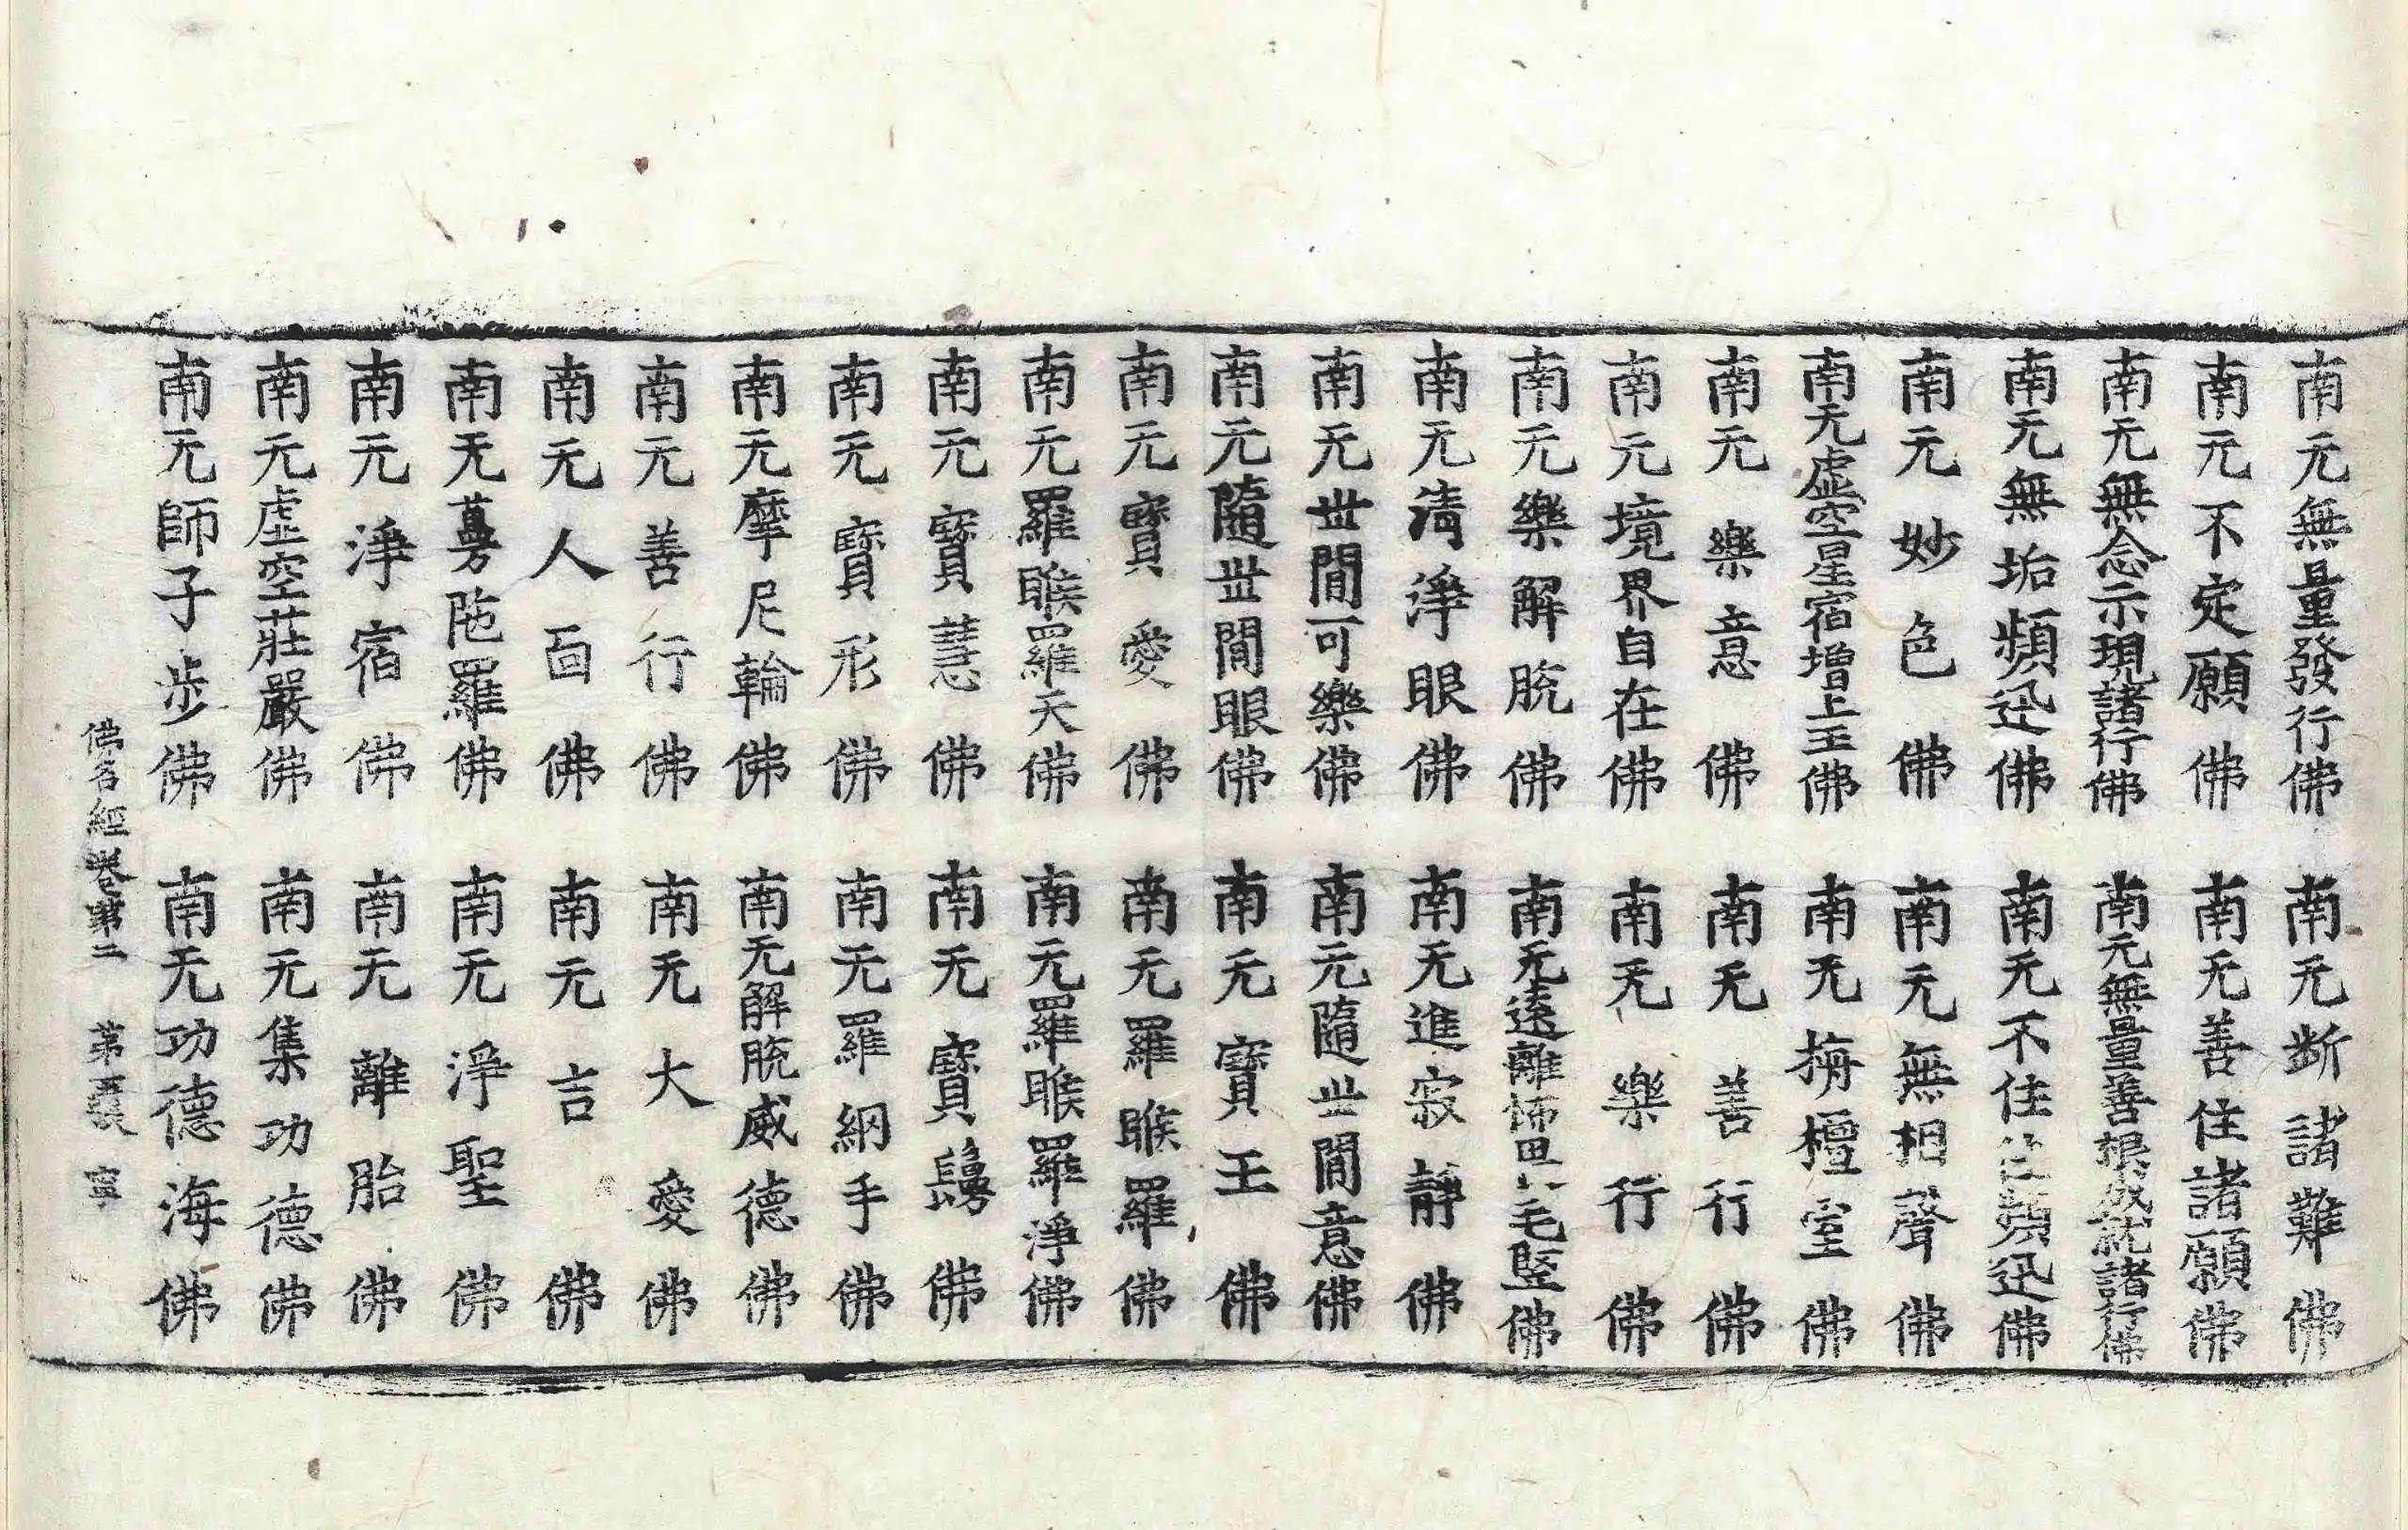 南无無量發行佛 南无斷諸難佛
南无不定願佛 南无善住諸願佛
南无無念示現諸行佛 南无無量善根成就諸行佛
南无無垢頻迅佛 南无不住 頻迅佛
南无妙色佛 南无無相聲佛
南无虛空星宿增上王佛 南无栴檀室佛
南无樂意佛 南无善行佛
南无境界自在佛 南无樂行佛
南无樂解脫佛 南无遠離怖畏 毛竪佛
南无淸淨眼佛 南无進寂靜佛
南无世間可樂佛 南无隨世間意佛
南无隨世間眼佛 南无寶王佛
南无寶愛佛 南无羅睺羅佛
南无羅睺羅天佛 南无羅睺羅淨佛
南无寶慧佛 南无寶髣佛
南无寶形佛 南无羅網手佛
南无摩尼輪佛 南无解脫威德佛
南无善行佛 南无大愛佛
南无人面佛 南无言佛
南无曼陁羅佛 南无淨聖佛
南无淨宿佛 南无離胎佛
南无虛空莊嚴佛 南无集功德佛
南无師子步佛 南无功德海佛
佛名經卷第二 第 張 寧